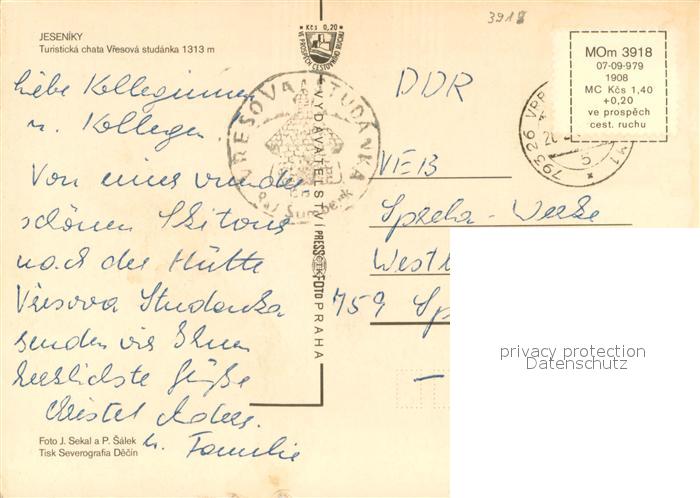 JESENÍKY
Turistická chata Vřesová studánka 1313 m
Kčs 0,20
VE PROSPĚCH CESTOVNÍHO RUCHU
3918
MOm 3918
07-09-979
1908
MC Kčs 1,40
+0,20
ve prospěch
cest. ruchu
79326 VRB
5
VŘESOVÁ STUDÁNKA
Liebe Kolleginnen
u. Kollegen
Von einer wunder
schönen Skitour
nach der Hütte
Vřesova Studanka
senden wir Ihnen
herzlichste Grüße
Christel
u. Familie
DDR
VEB
Sprela-Werke
759 Sp
VYDAVATELSTVÍ PRESSFOTO PRAHA
Foto J. Sekal a P. Šálek
Tisk Severografia Děčín
privacy protection
Datenschutz